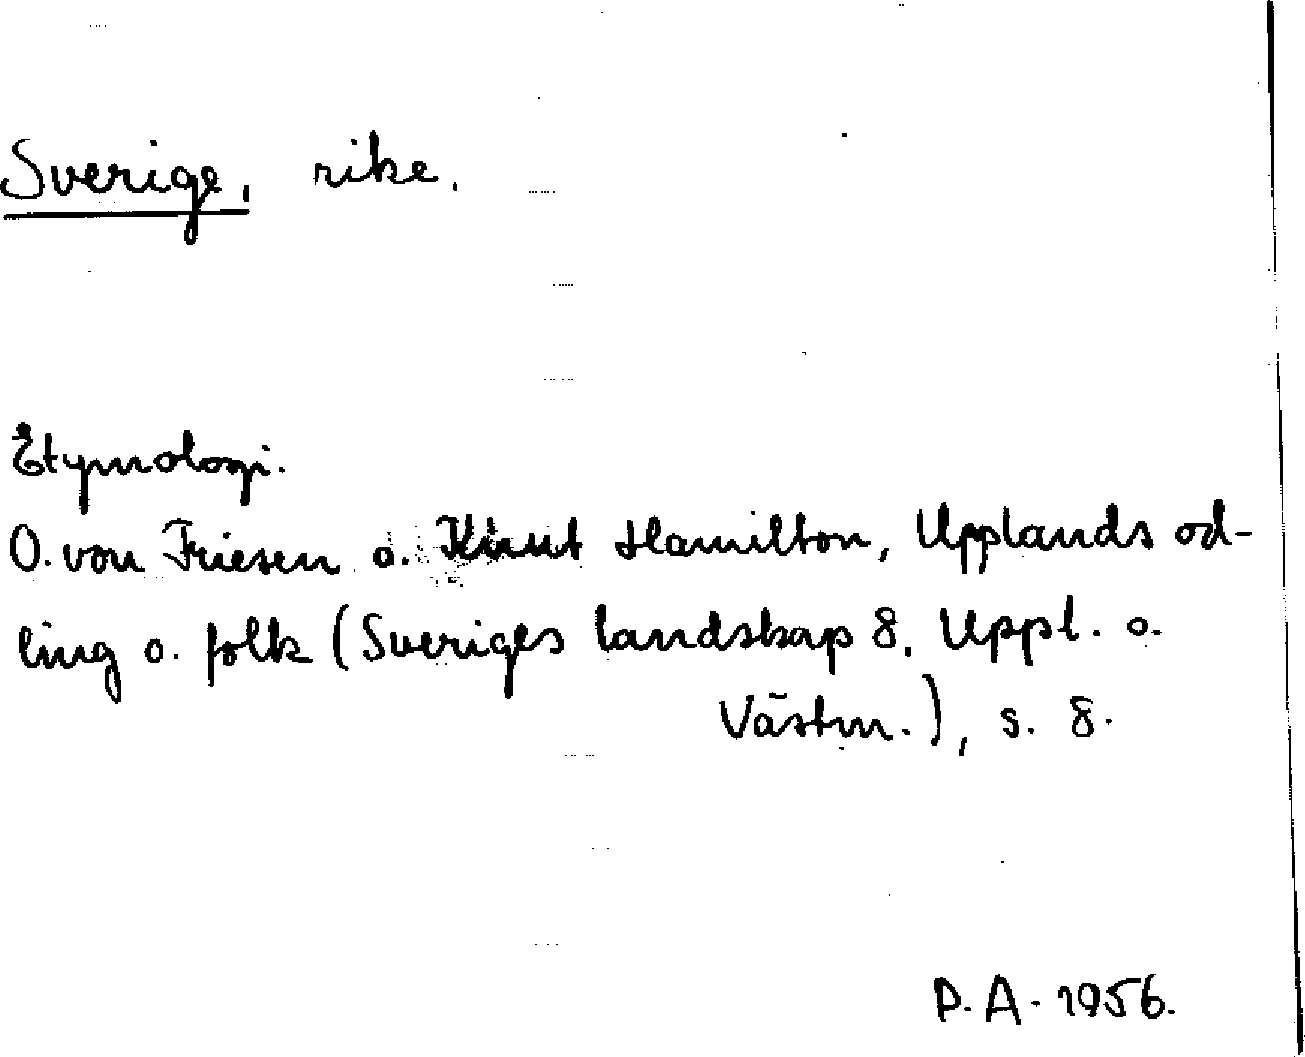 Sverige, rike.
Etymologi.
O. von Friesen o. Knut Hamilton, Upplands od-
ling o. folk (Sveriges landskap 8. Uppl. o.
Västm.), s. 8.
P. A. 1956.